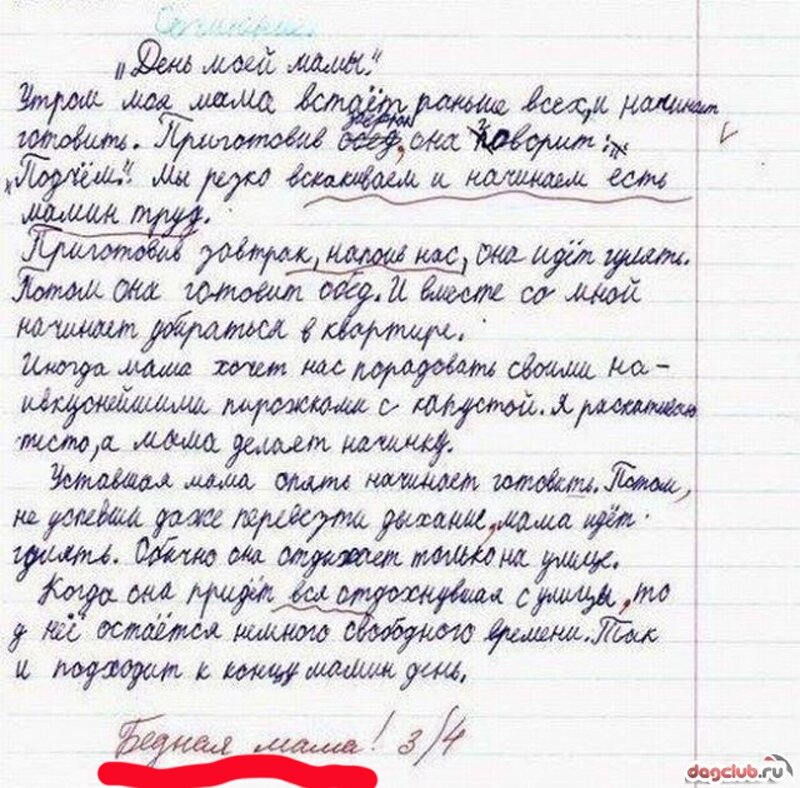 Сочинение.
„День моей мамы."
Утром моя мама встаёт раньше всех, и начинает
завтрак
готовить. Приготовив обед, она говорит:
„Подъём". Мы резко вскакиваем и начинаем есть
мамин труд.
Приготовив завтрак, напоив нас, она идёт гулять.
Потом она готовит обед. И вместе со мной
начинает убираться в квартире.
Иногда мама хочет нас порадовать своими на-
ивкуснейшими пирожками с капустой. Я раскатываю
тесто, а мама делает начинку.
Уставшая мама опять начинает готовить. Потом,
не успевши даже перевезти дыхание, мама идёт
гулять. Обычно она отдыхает только на улице.
Когда она придёт вся отдохнувшая с улицы, то
у неё остаётся немного свободного времени. Так
и подходит к концу мамин день.
Бедная мама! 3/4
dagclub.ru